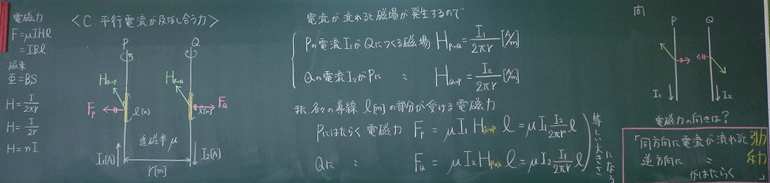 電磁力
F=μIHl
=IBl
磁束
Φ=BS
H=I/2πr
H=I/2r
H=nI
＜C 平行電流が及ぼし合う力＞
P
Q
H_Q→P
H_P→Q
F_P
F_Q
l[m]
l[m]
透磁率μ
I₁[A]
I₂[A]
r[m]
電流が流れると磁場が発生するので
Pの電流I₁がQにつくる磁場 H_P→Q=I₁/2πr[A/m]
Qの電流I₂がPに 〃 H_Q→P=I₂/2πr[A/m]
各々の導線l[m]の部分が受ける電磁力
Pにはたらく電磁力 F_P=μI₁H_Q→P l=μI₁I₂/2πr l
Qに 〃 F_Q=μI₂H_P→Q l=μI₂I₁/2πr l
等しい大きさになる
問
P
Q
I₁
I₂
電磁力の向きは？
「同方向に電流が流れると引力
逆方向に 〃 斥力
がはたらく」